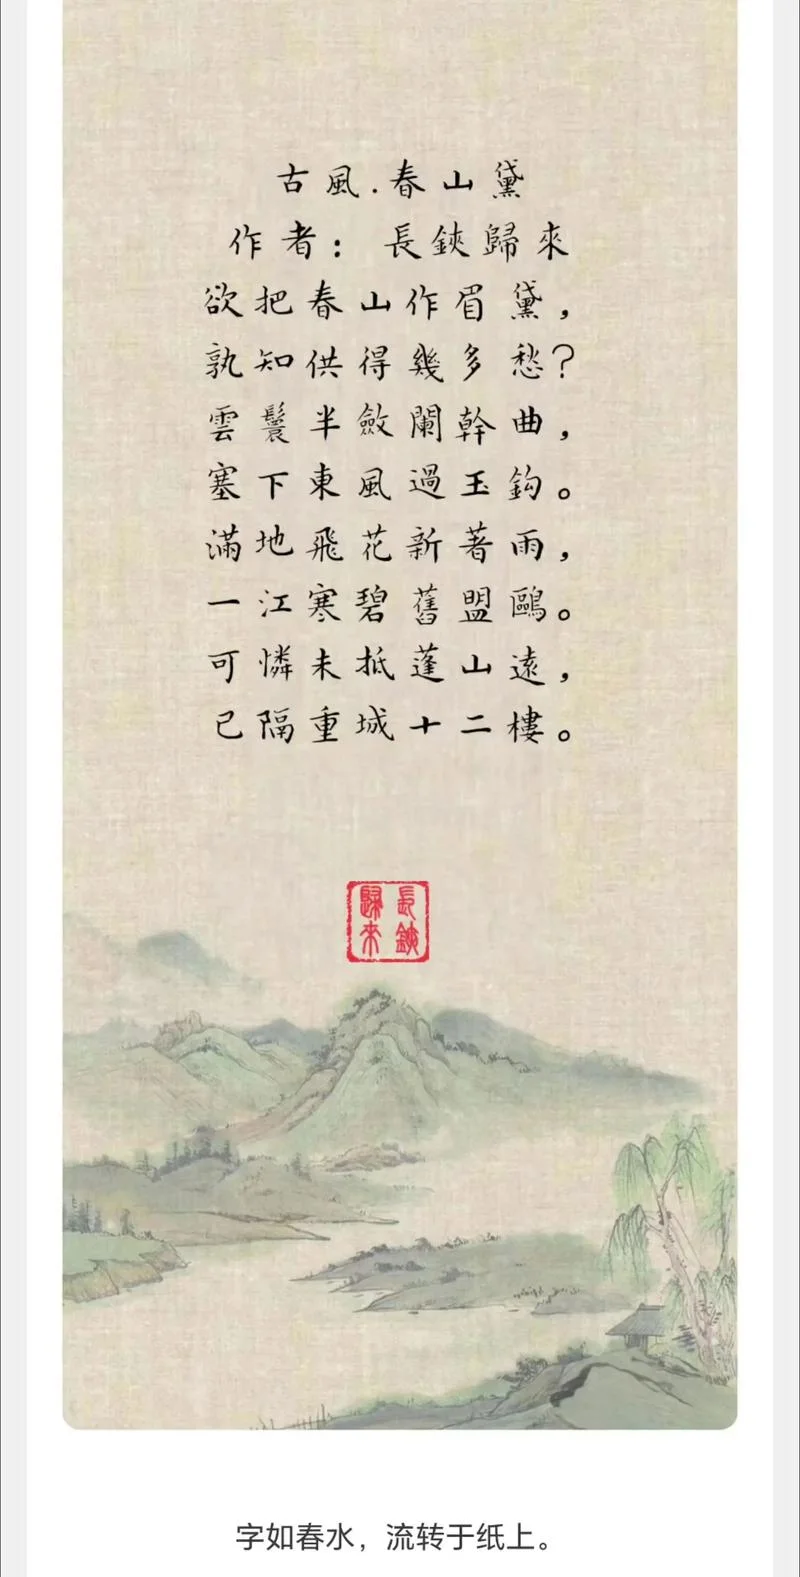 古風.春山黛
作者：長鋏歸來
欲把春山作眉黛，
孰知供得幾多愁？
雲鬟半斂闌幹曲，
塞下東風過玉鈎。
滿地飛花新著雨，
一江寒碧舊盟鷗。
可憐未抵蓬山遠，
已隔重城十二樓。
長鋏
歸來
字如春水，流转于纸上。